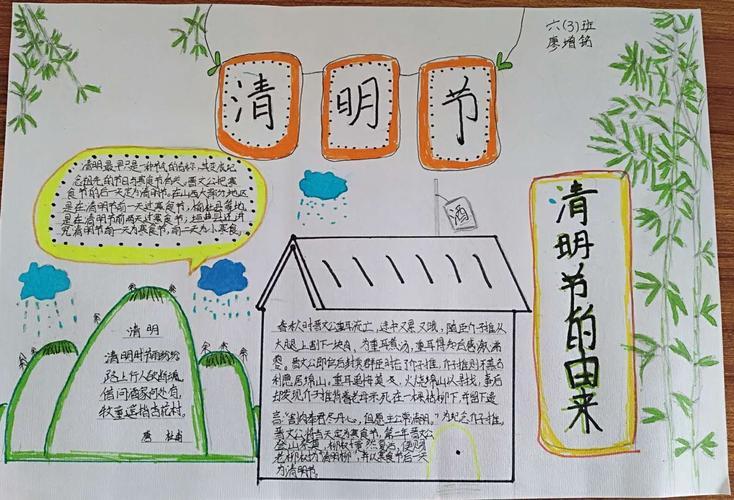 六(3)班
廖增铭
清 明 节
清明最早只是一种节气的名称,其变成纪
念祖先的节日与寒食节有关,晋文公把寒
食节的后一天定为清明节。在山西大部分地区
是在清明节前一天过寒食节,榆社县等地
是在清明节前两天过寒食节,垣曲县还讲
究清明节前一天为寒食节,前二天为小寒食。
酒
清明节的由来
清明
清明时节雨纷纷
路上行人欲断魂
借问酒家何处有
牧童遥指杏花村。
唐 杜甫
春秋时晋文公重耳流亡,途中又累又饿,随臣介子推从
大腿上割下一块肉,为重耳煮汤,重耳得知后感激
晋文公即位后封赏群臣时忘了介子推,介子推则不慕名
利隐居绵山,重耳
火烧绵山以寻找,事后
却发现介子推背着老母亲死在一棵枯柳下,并留下遗
言:"割肉奉君尽丹心,但愿主公常清明。"为纪念介子推,
晋文公将当天定为寒食节,第二年晋文公
登山祭奠,
老柳树为"清明柳",并以寒食节后一天
为清明节。